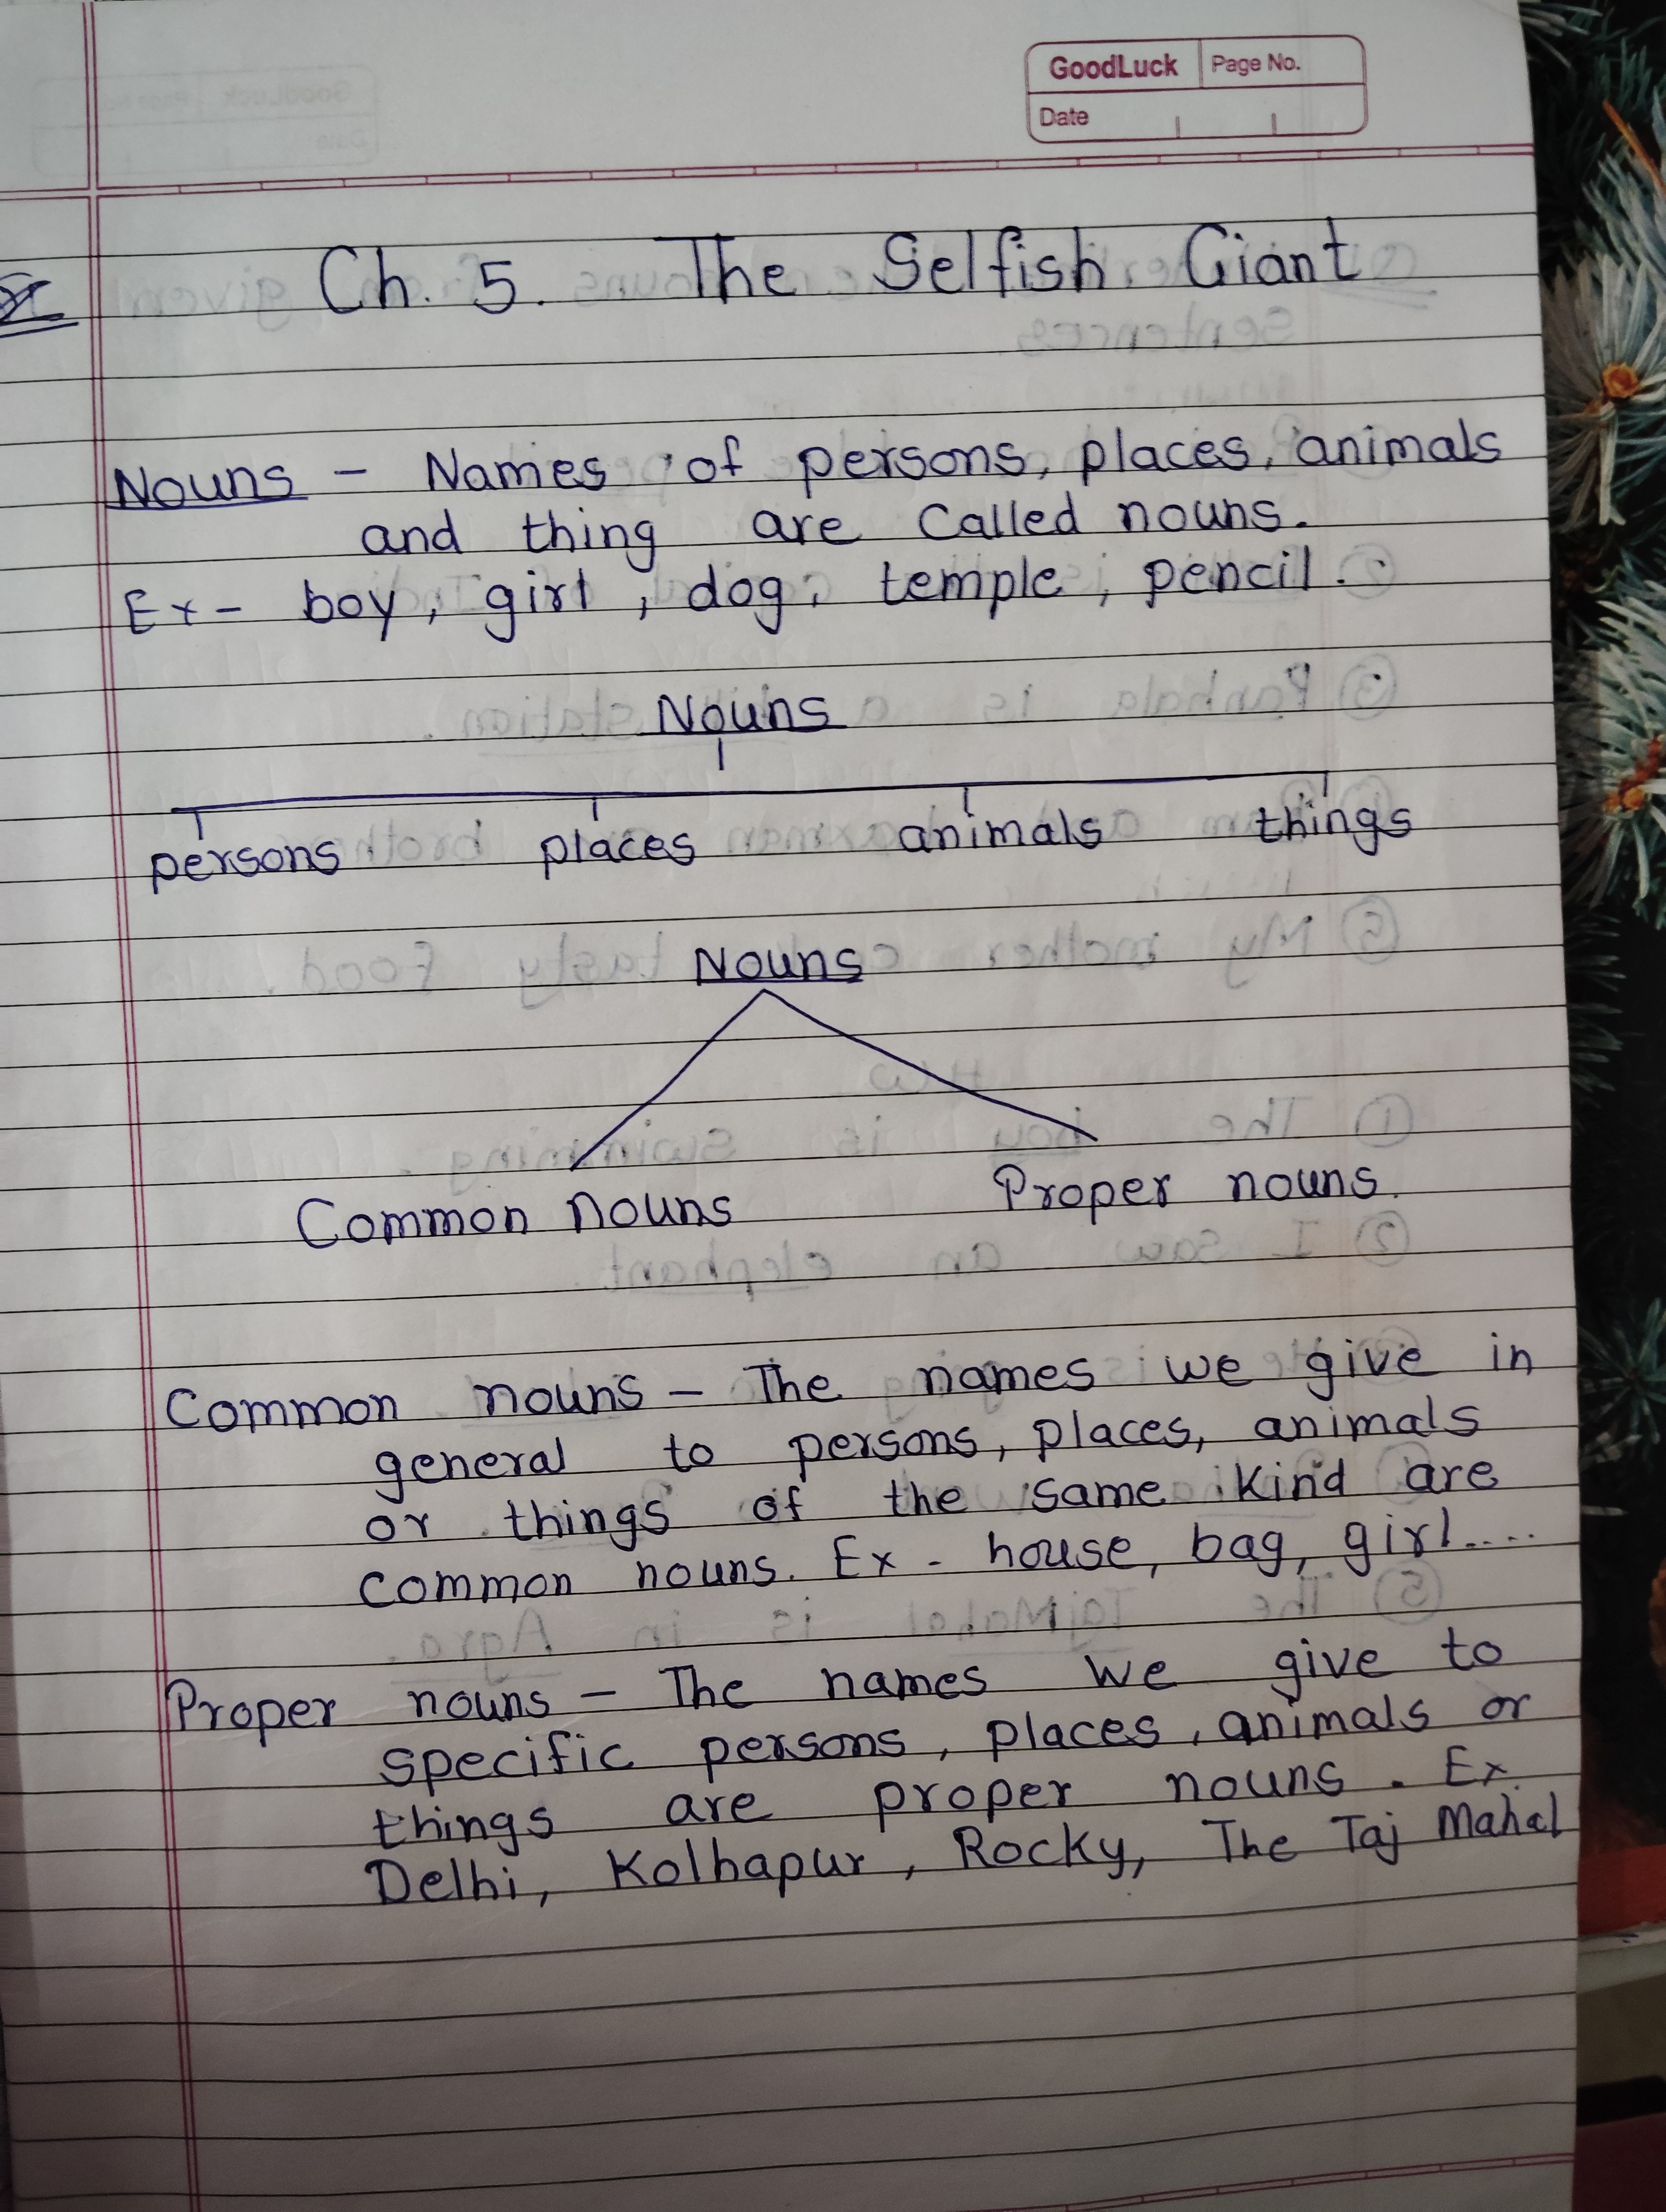 GoodLuck Page No.
Date
Ch. 5. The Selfish Giant
Nouns - Names of persons, places, animals
and thing are called nouns.
Ex - boy, girl, dog, temple, pencil.
Nouns
persons places animals things
Nouns
Common nouns Proper nouns.
Common nouns - The names we give in
general to persons, places, animals
or things of the same kind are
common nouns. Ex - house, bag, girl....
Proper nouns - The names we give to
specific persons, places, animals or
things are proper nouns. Ex.
Delhi, Kolhapur, Rocky, The Taj Mahal